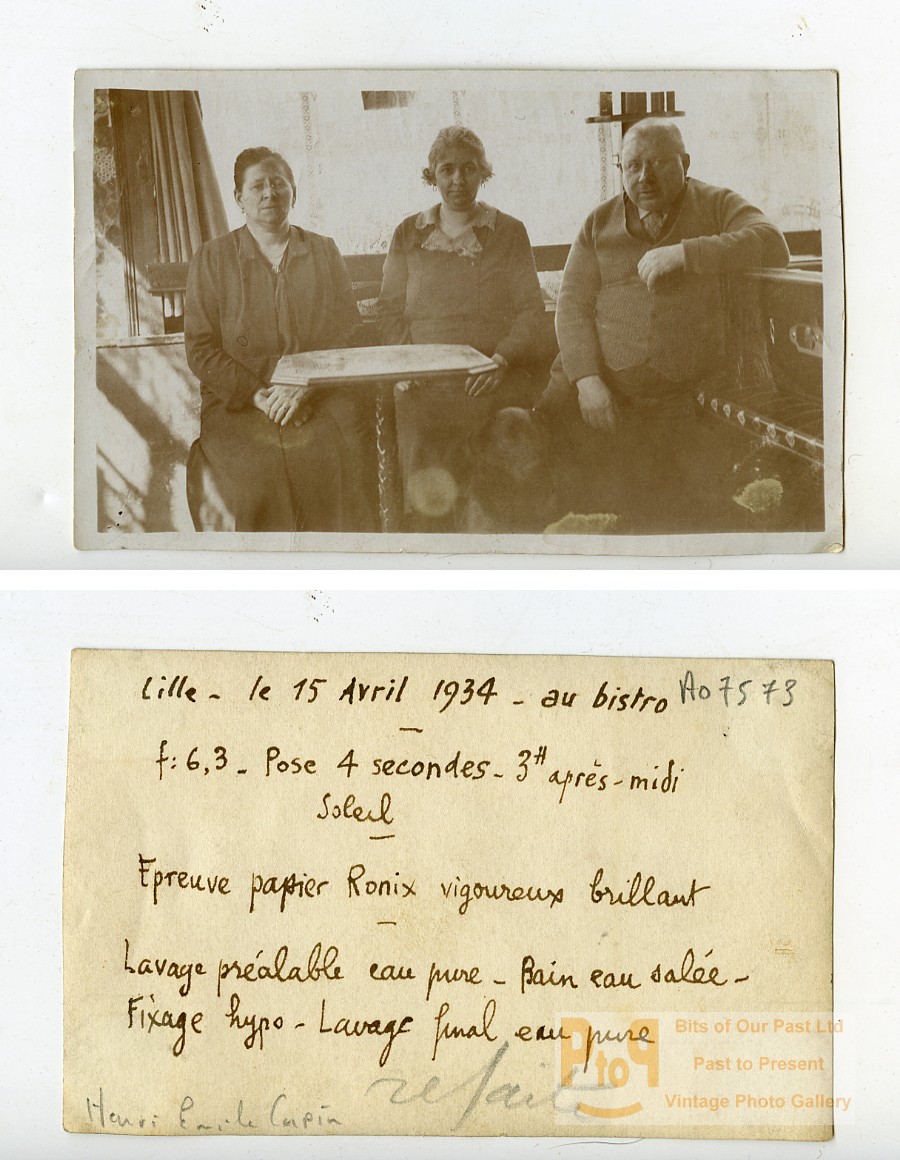 Lille - le 15 Avril 1934 - au bistro A07573
f: 6,3 - Pose 4 secondes - 3H après-midi
Soleil
Epreuve papier Ronix vigoureux brillant
Lavage préalable eau pure - Bain eau salée -
Fixage hypo - Lavage final eau pure
Bits of Our Past Ltd
PtoP
Past to Present
refaite
Vintage Photo Gallery
Henri Emile